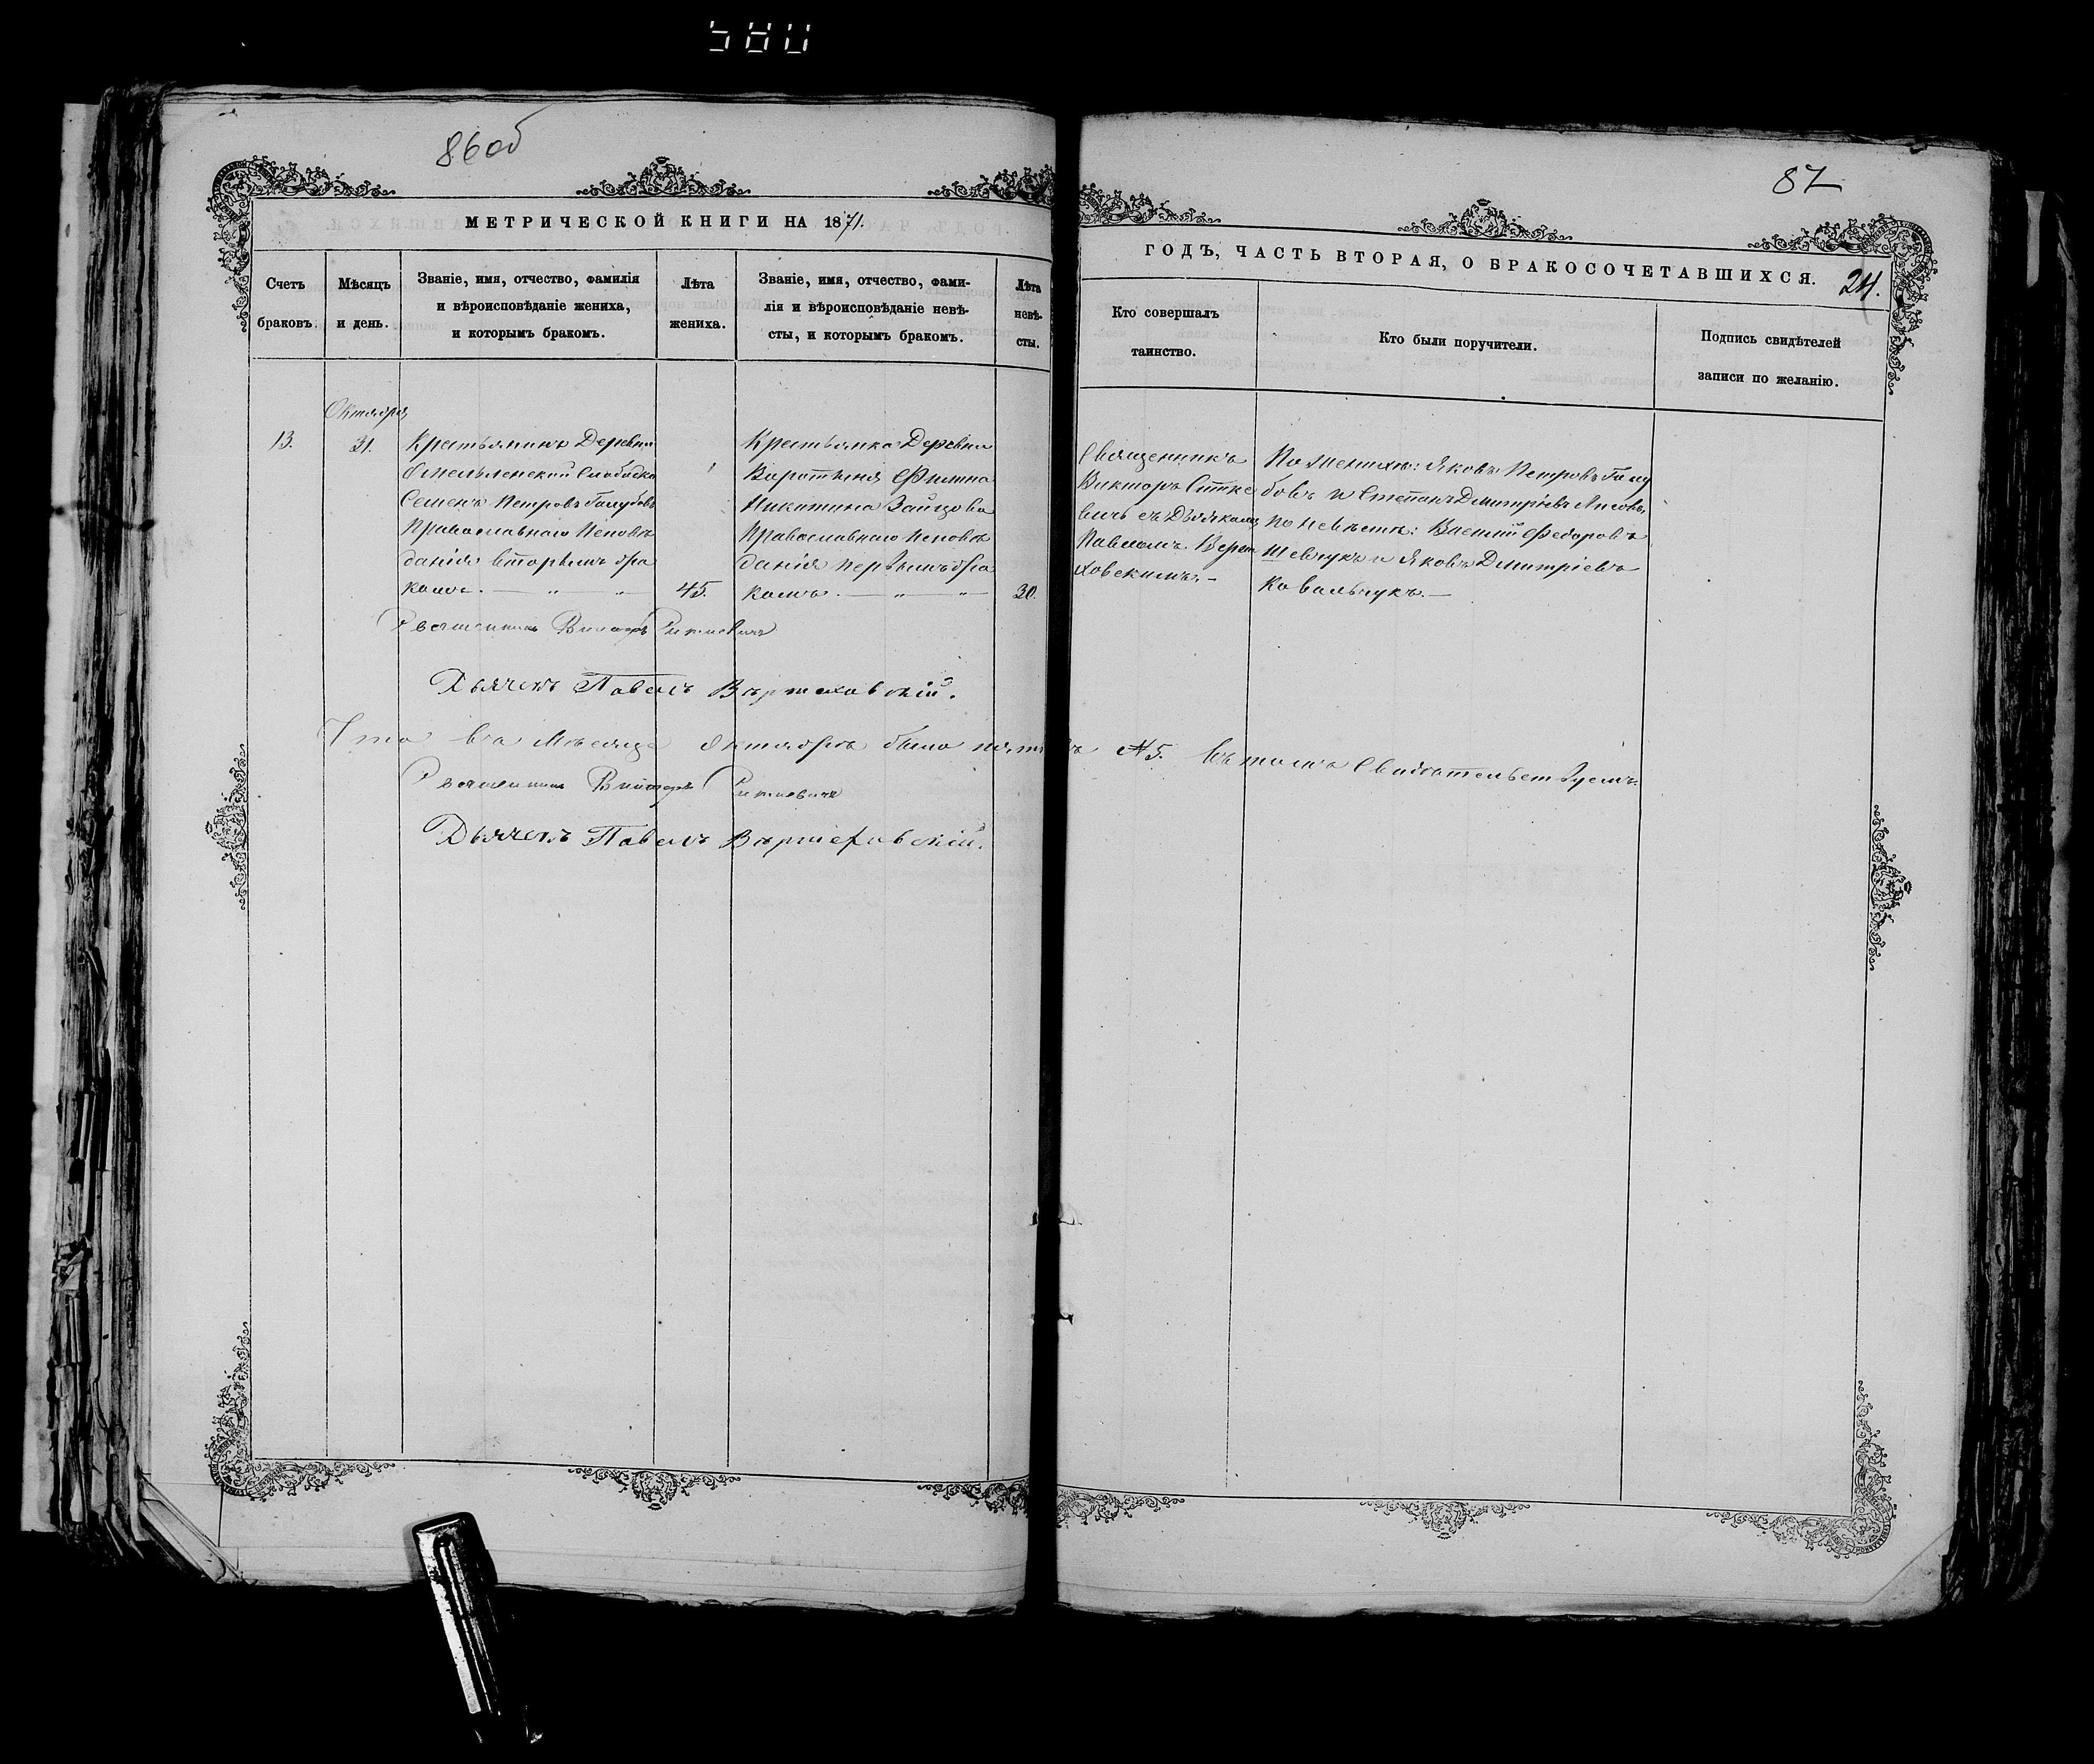 580
86об
МЕТРИЧЕСКОЙ КНИГИ НА 1871.
Счетъ браковъ.
Мѣсяцъ и день.
Званіе, имя, отчество, фамилія
и вѣроисповѣданіе жениха,
и которымъ бракомъ.
Лѣта
жениха.
Званіе, имя, отчество, фами-
лія и вѣроисповѣданіе невѣ-
сты, и которымъ бракомъ.
Лѣта
невѣ-
сты.
Октября
13.
31.
Крестьянинъ Деревни
Слободки
Семенъ Петровъ Голубовъ
Православнаго Исповѣ
данія вторымъ бра
комъ. — „ — „
45.
Крестьянка Деревни
Никитина Зайцова
Православнаго Исповѣ
данія первымъ бра
комъ. — „ — „
30.
Священникъ Викторъ
Дьячекъ Павелъ
Что въ Мѣсяцѣ Октябрѣ было № 5. Въ томъ Свидѣтельствуемъ.
Священникъ Викторъ
Дьячекъ Павелъ
87
ГОДЪ, ЧАСТЬ ВТОРАЯ, О БРАКОСОЧЕТАВШИХСЯ.
24.
Кто совершалъ
таинство.
Кто были поручители.
Подпись свидѣтелей
записи по желанію.
Священникъ
Викторъ
вичь съ Дьячкомъ
Павломъ
ховскимъ. —
По женихѣ: Яковъ Петровъ Голу
бовъ и Степанъ Дмитріевъ
по невѣстѣ: Федоровъ
Шевчукъ и Яковъ Дмитріевъ
Ковальчукъ. —